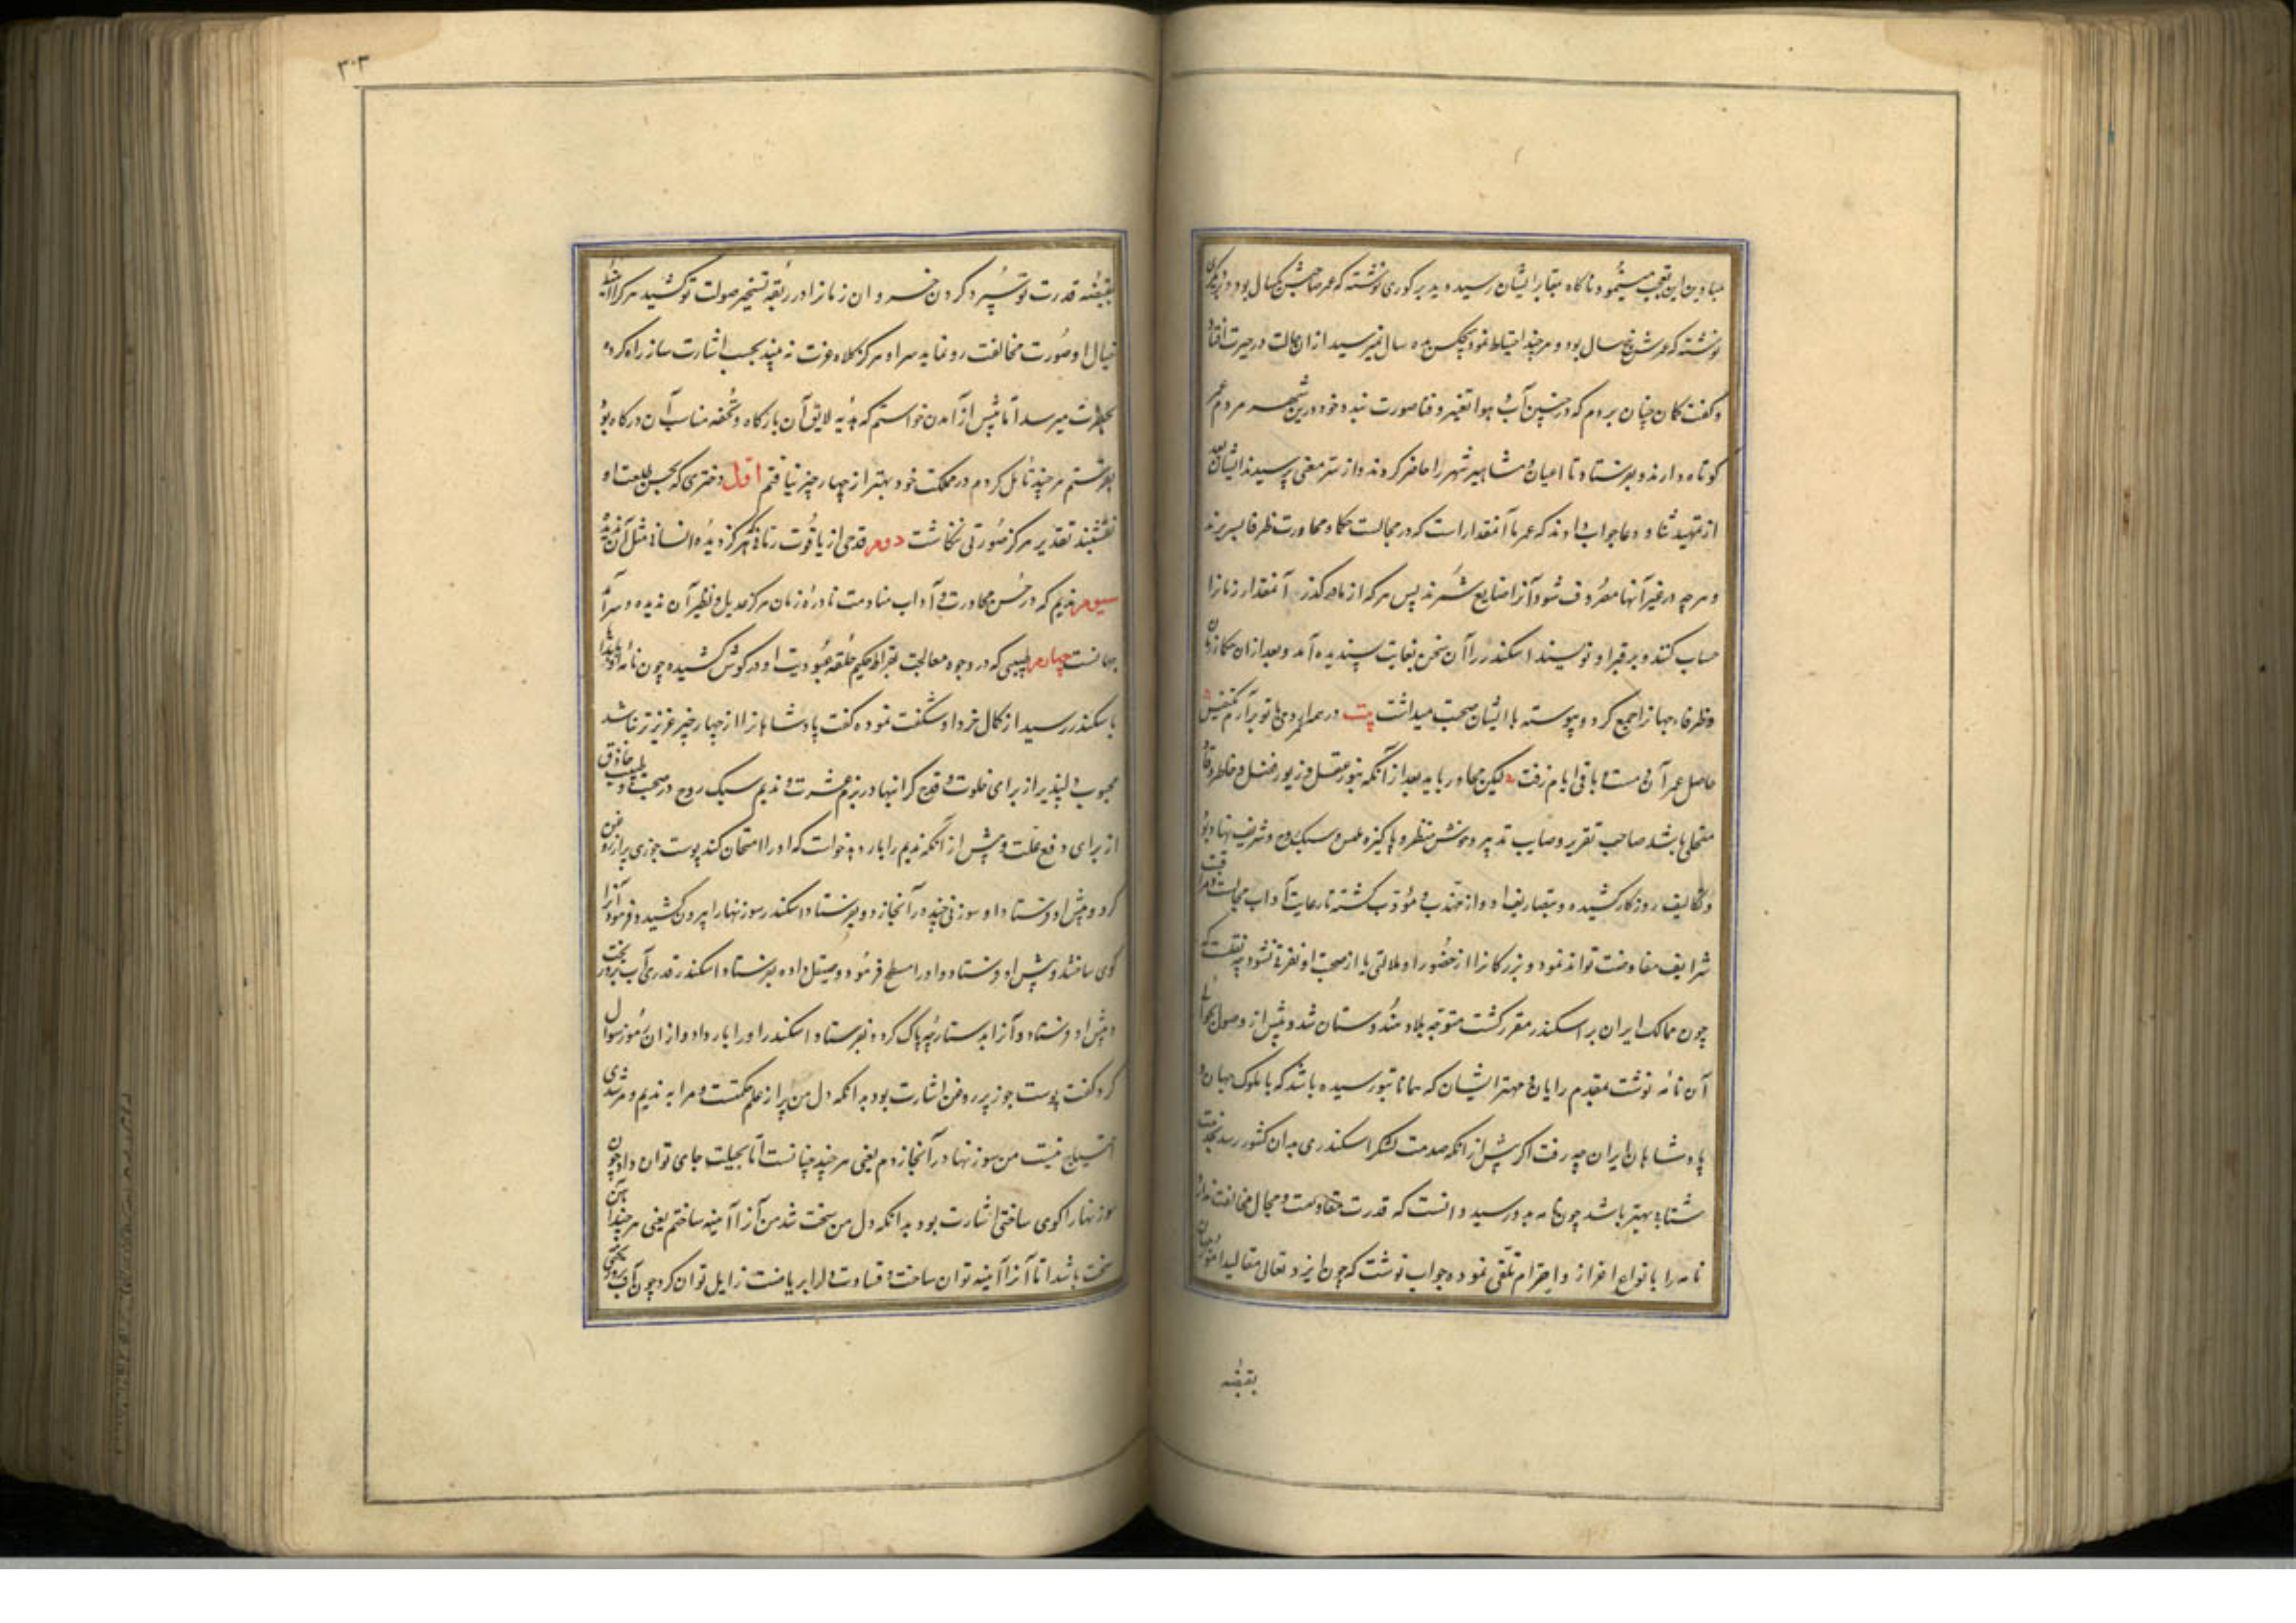 عباد من این تعجب مینمود ناگاه بمقابر ایشان رسید و دید بر گوری نوشته که عمر صاحبش یکسال بود و بر دیگری
نوشته که عمرش پنج سال بود و هر چند احتیاط نمود هیچکس بده سال نمیرسید ازان حالت در حیرت افتاد
و گفت گمان چنان بردم که در چنین آب و هوا تغیر و فنا صورت نبندد خود درین شهر مردم عمر
کوتاه دارند و بفرستاد تا اعیان و مشاهیر شهر را حاضر کردند و از سر معنی پرسیدند ایشان بعد
از تمهید ثنا و دعا جواب دادند که عمر ما آنمقدار است که در مجالست حکما و محاورت ظرفا بسر بریم
و هر چه در غیر آنها مصروف شود آنرا ضایع شمرند پس هر که از ما در گذرد آنمقدار زمانرا
حساب کنند و بر قبر او نویسند اسکندر را آن سخن بغایت پسندیده آمد و بعد ازان حکما زمان
و ظرفاء جهانرا جمع کرد و پیوسته با ایشان صحبت میداشت بیت در عمر اگر دمی با تو برآرم نفسی
حاصل عمر آن دمست و باقی ایام رفت لیکن محاور باید بعد از آنکه بنور عقل و زیور فضل و خاطر وقاد
متحلی باشد صاحب تقریر و صایب تدبیر و خوش منظر و پاکیزه ملبس و سبک روح و شریف نهاد بود
و تکالیف روزگار کشیده و بتصاریف ادوار مهذب و مؤدب گشته تا رعایت آداب مجالست و مراقبت
شرایف مفاوضت تواند نمود و بزرگانرا از حضور او ملالتی یا از صحبت او نفرتی نشود چه نقلست که
چون ممالک ایران بر اسکندر مقرر گشت متوجه بلاد هندوستان شد و پیش از وصول بحوالی
آن نامه نوشت بمقدم رایان و مهتر ایشان که همانا بتو رسیده باشد که با ملوک جهان و
پادشاهان ایران چه رفت اگر پیش از انکه صدمت لشکر اسکندری بدان کشور رسد بخدمت
شتابد بهتر باشد چون نامه بدو رسید دانست که قدرت مقاومت و مجال مخالفت ندارد
نامه را بانواع اعزاز و احترام تلقی نموده جواب نوشت که چون ایزد تعالی مقالید امور جهان
بقبضه
۳۰۳
بقبضه قدرت تو سپرد گردن خسروان زمانرا در ربقه تسخیر صولت تو کشید هر کرا اندر
خیال او صورت مخالفت رو نماید سر او هرگز کلاه عزت نه بیند بحسب اشارت ساز راه کرده
بحضرت میرسد اما پیش از آمدن خواستم که هدیه لایق آن بارگاه و تحفه مناسب آن درگاه بود
بفرستم هر چند تأمل کردم در مملکت خود بهتر از چهار چیز نیافتم اول دختری که بحسن طلعت او
نقشبند تقدیر هرگز صورتی نگاشت دوم قدحی از یاقوت رمانی که هرگز دیده انسانی مثل آن ندیده
سیوم ندیم که در حسن محاورت و آداب منادمت نادره زمان هرگز عدیل و نظیر آن ندیده و سرآمد
جهانست چهارم طبیبی که در وجوه معالجت بقراط حکیم حلقه عبودیت او در گوش کشیده چون نامه او
باسکندر رسید از کمال خرد او شگفت نموده گفت پادشاهانرا از چهار چیز عزیزتر نباشد
محبوب دلپذیر از برای خلوت و قدح گرانبها در بزم عشرت و ندیم سبک روح در صحبت و طبیب حاذق
از برای دفع علت و پیش از آنکه ندیم را بار دهد خواست که او را امتحان کند پوست جوزی پر از روغن
کرد و پیش او فرستاد او سوزنی چند در آنجا زد و بفرستاد اسکندر سوزنها را بیرون کشیده فرمود آنرا
گوی ساختند و پیش او فرستاد و او را مسطح فرمود و صیقل داده بفرستاد اسکندر قدری آب بر رویش ریخت
و پیش او فرستاد و آنرا بدستارچه پاک کرد و بفرستاد اسکندر او را بار داد و از ان رموز سؤال
کرد گفت پوست جوز پر روغن اشارت بود بدانکه دل من پر از علم و حکمتست و مرا به ندیم و مرشدی
احتیاج نیست من سوزنها در آنجا زدم یعنی هر چند چنانست اما بحیلت جای توان داد چون
سوزنها را گوی ساختی اشارت بود بدانکه دل من سخت شد من آنرا آیینه ساختم یعنی هر چند آهن
سخت باشد اما آنرا آیینه توان ساخت و قساوت دل را بریاضت زایل توان کرد چون آب بر وی ریختی